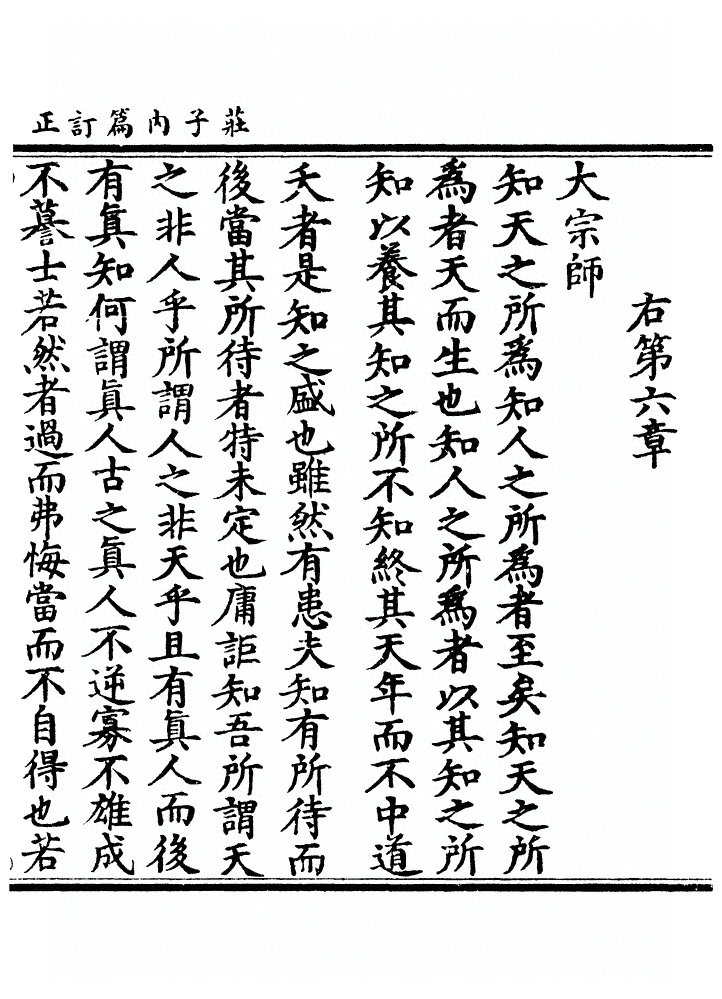 莊子內篇訂正
右第六章
大宗師
知天之所為知人之所為者至矣知天之所
為者天而生也知人之所為者以其知之所
知以養其知之所不知終其天年而不中道
夭者是知之盛也雖然有患夫知有所待而
後當其所待者特未定也庸詎知吾所謂天
之非人乎所謂人之非天乎且有眞人而後
有眞知何謂眞人古之眞人不逆寡不雄成
不謩士若然者過而弗悔當而不自得也若